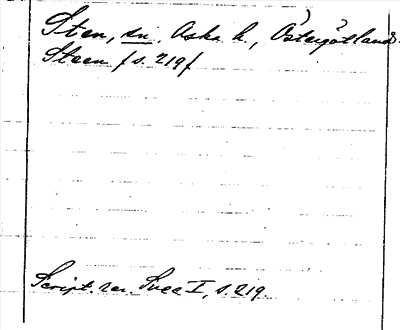 Sten, sn. Aska h., Östergötland.
Steen /s. 219/
Script. rer. Svec I, s. 219.